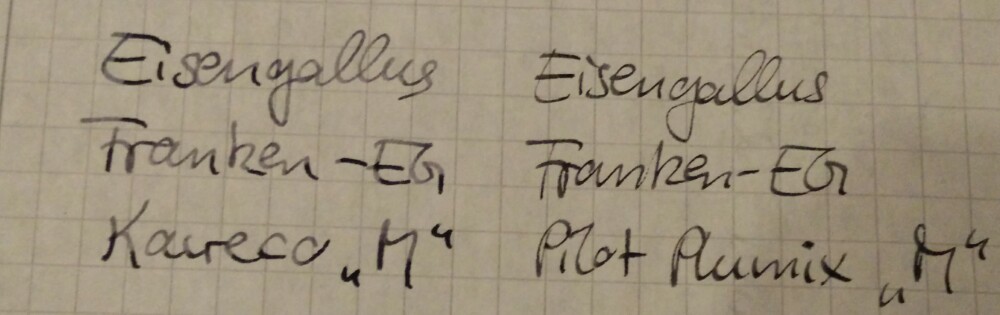 Eisengallus
Franken-EG
Kaweco „M“
Eisengallus
Franken-EG
Pilot Plumix „M“